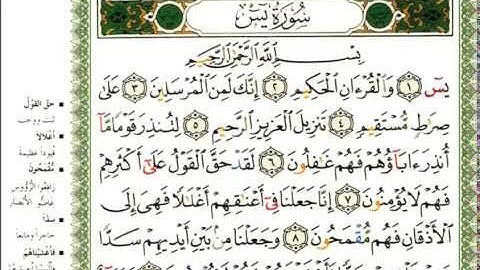 سُورَةُ يسٓ
بِسْمِ اللَّهِ الرَّحْمَٰنِ الرَّحِيمِ
يسٓ ١ وَالْقُرْءَانِ الْحَكِيمِ ٢ إِنَّكَ لَمِنَ الْمُرْسَلِينَ ٣ عَلَىٰ
صِرَٰطٍ مُّسْتَقِيمٍ ٤ تَنزِيلَ الْعَزِيزِ الرَّحِيمِ ٥ لِتُنذِرَ قَوْمًا مَّآ
أُنذِرَ ءَابَآؤُهُمْ فَهُمْ غَٰفِلُونَ ٦ لَقَدْ حَقَّ الْقَوْلُ عَلَىٰٓ أَكْثَرِهِمْ
فَهُمْ لَا يُؤْمِنُونَ ٧ إِنَّا جَعَلْنَا فِىٓ أَعْنَٰقِهِمْ أَغْلَٰلًا فَهِىَ إِلَى
الْأَذْقَانِ فَهُم مُّقْمَحُونَ ٨ وَجَعَلْنَا مِنۢ بَيْنِ أَيْدِيهِمْ سَدًّا
حَقَّ القَوْلُ
ثبت ووجب
أغلالاً
قيوداً عظيمة
مُقْمَحُونَ
رافعُوا الرُّؤُوسِ
غاضُّو الأبْصار
سَدًّا
حاجزاً ومانعاً
فَأَغْشَيْنَاهُمْ